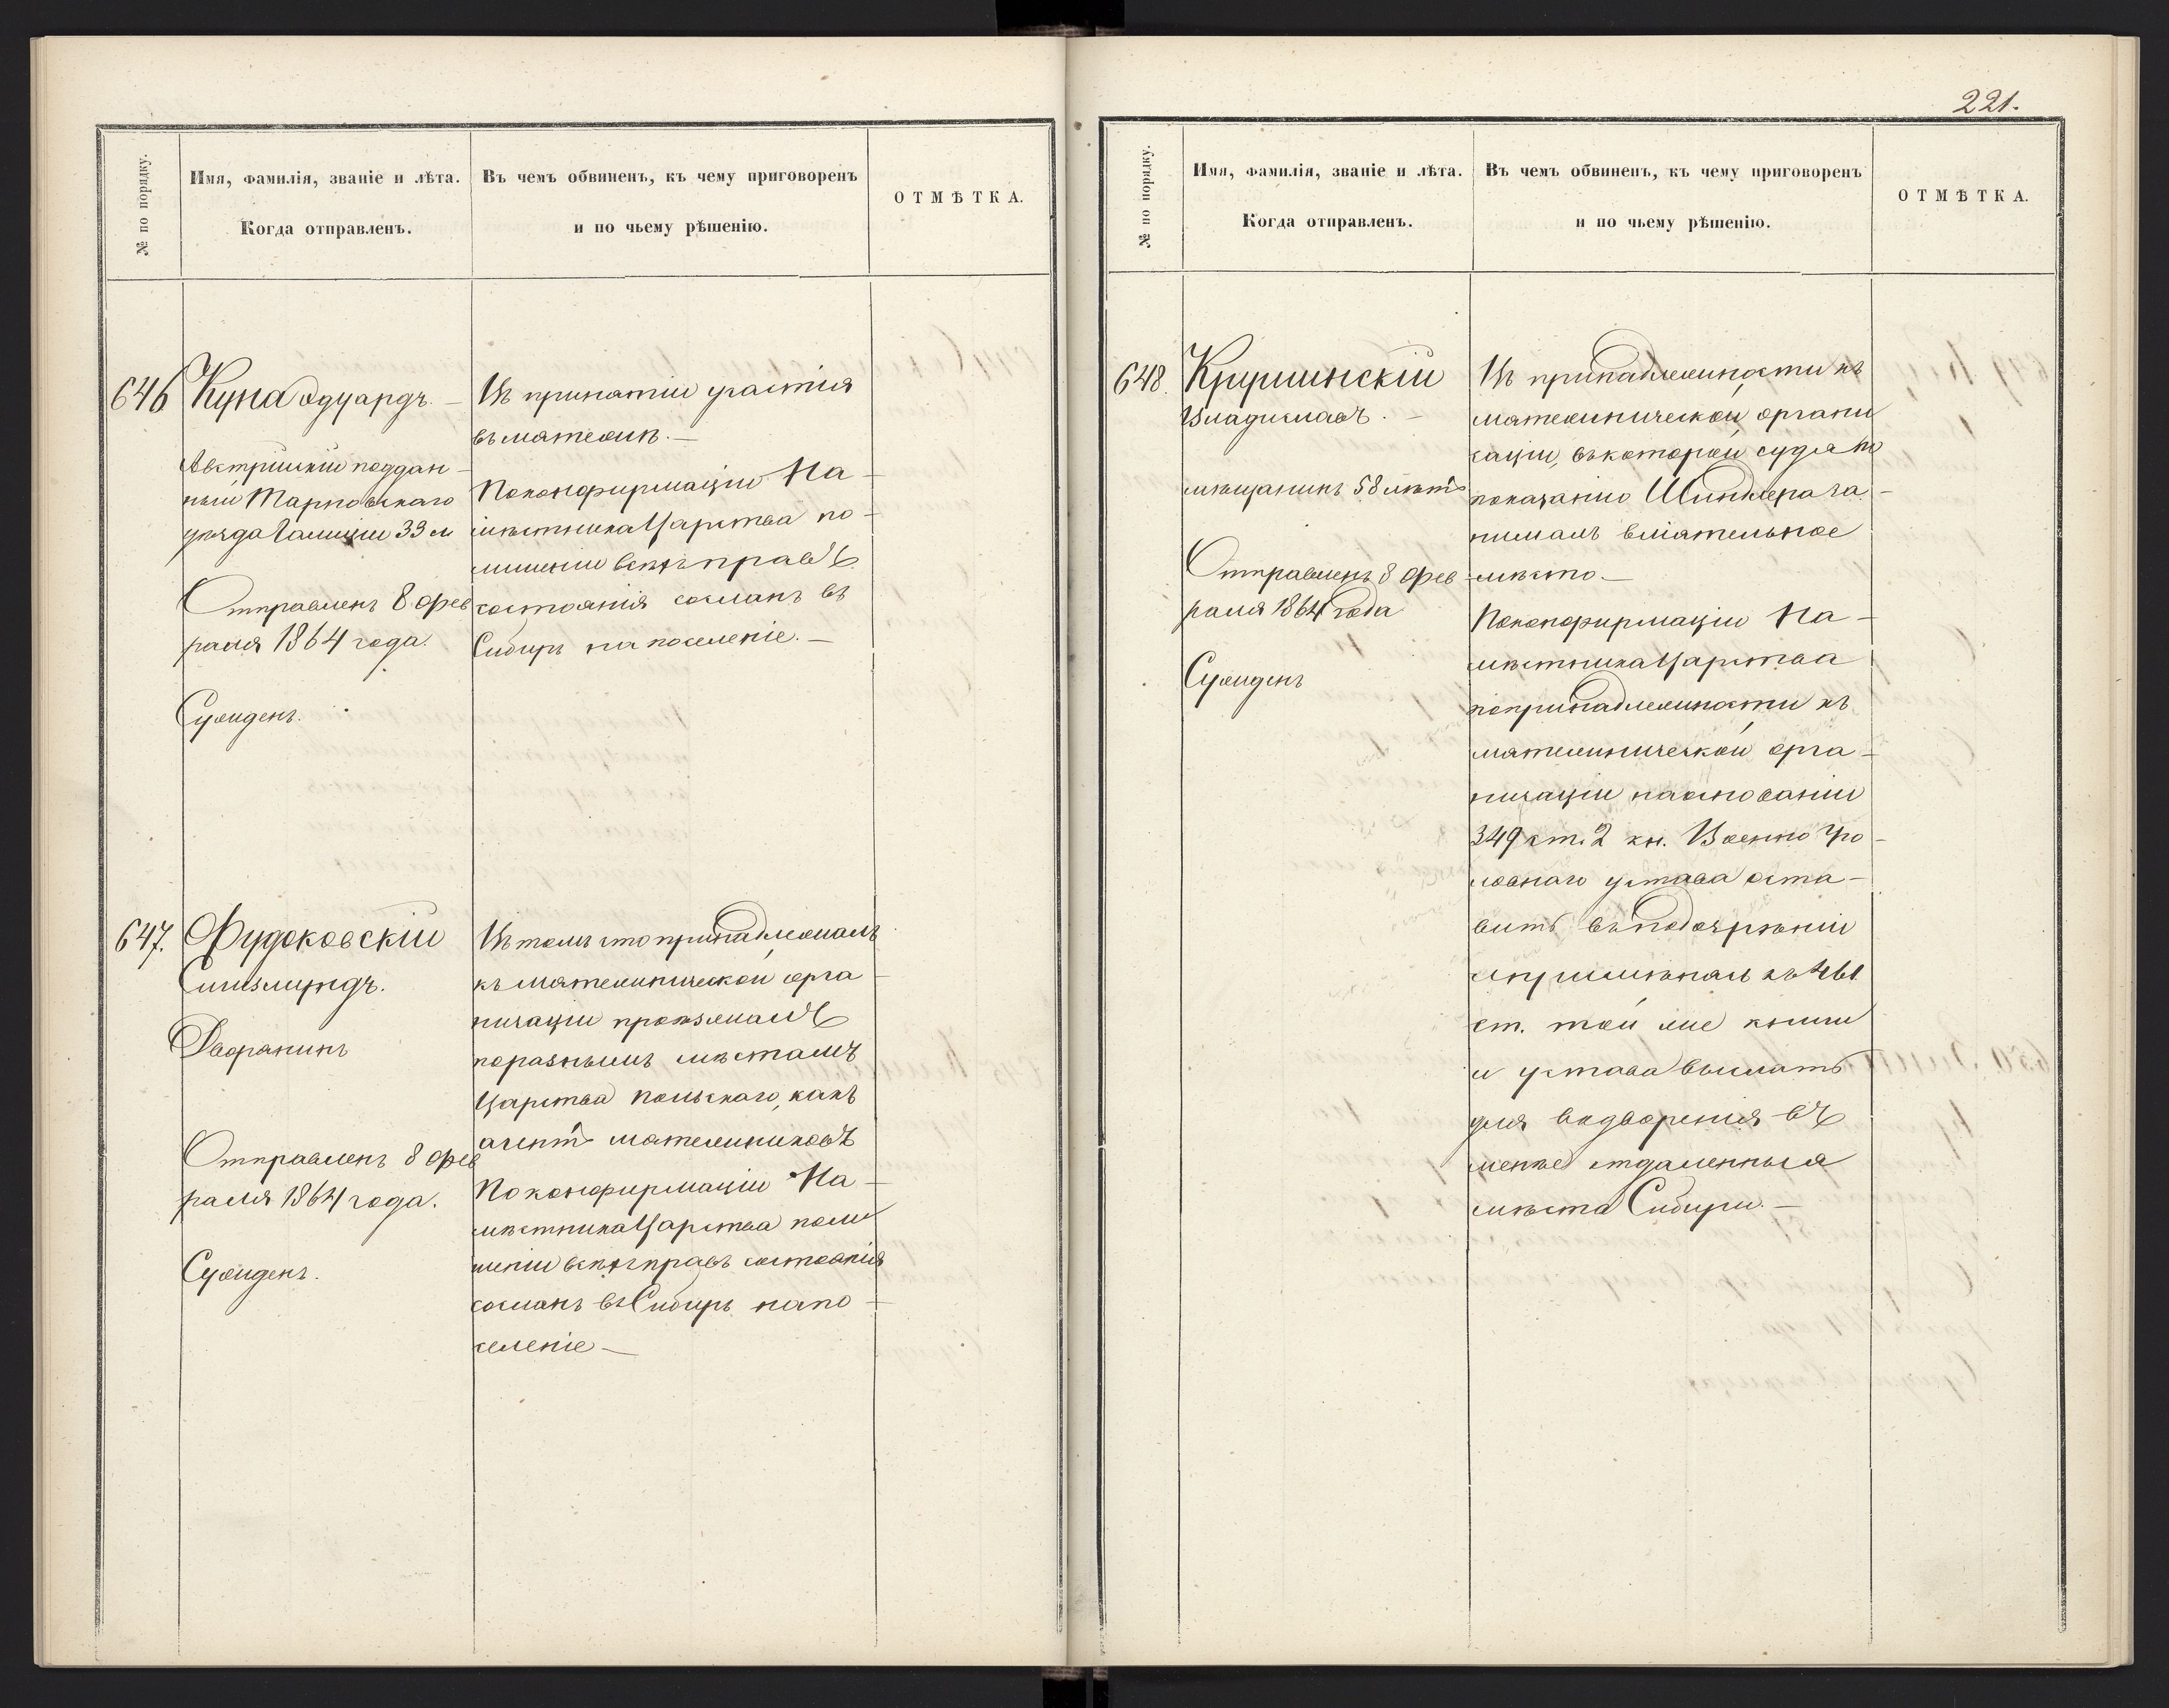 № по порядку.
Имя, фамилія, званіе и лѣта.
Когда отправленъ.
Въ чемъ обвиненъ, къ чему приговоренъ
и по чьему рѣшенію.
ОТМѢТКА.
646
Куна Эдуардъ. —
Австрійскій поддан-
ный Тарновскаго
уѣзда Галиціи 33 л
Отправленъ 8 фев
раля 1864 года.
Сужденъ.
Въ принятіи участія
въ мятежѣ. —
По конфирмаціи На-
мѣстника Царства по-
лишеніи всѣхъ правъ
состоянія сосланъ въ
Сибирь на поселеніе. —
647.
Фудоковскій
Сигизмундъ.
Дворянинъ
Отправленъ 8 фев
раля 1864 года.
Сужденъ.
Въ томъ что принадлежалъ
къ мятежнической орга-
низаціи проѣзжалъ
по разнымъ мѣстамъ
Царства Польскаго, какъ
агентъ мятежниковъ
По конфирмаціи На-
мѣстника Царства по ли
шеніи всѣхъ правъ состоянія
сосланъ въ Сибирь на по-
селеніе —
221.
№ по порядку.
Имя, фамилія, званіе и лѣта.
Когда отправленъ.
Въ чемъ обвиненъ, къ чему приговоренъ
и по чьему рѣшенію.
ОТМѢТКА.
648.
Крушинскій
Владиславъ. —
мѣщанинъ 58 лѣтъ
Отправленъ 8 фев
раля 1864 года
Сужденъ
Въ принадлежности къ
мятежнической органи
заціи, въ которой судя по
показанію Шиндлера за-
нималъ вліятельное
мѣсто. —
По конфирмаціи На-
мѣстника Царства
по принадлежности къ
мятежнической орга-
низаціи на основаніи
349 ст. 2 кн. Военно Уго-
ловнаго устава оста-
вить въ подозрѣніи
ст. той же книги
и устава выслать
для водворенія въ
менѣе отдаленныя
мѣста Сибири. —